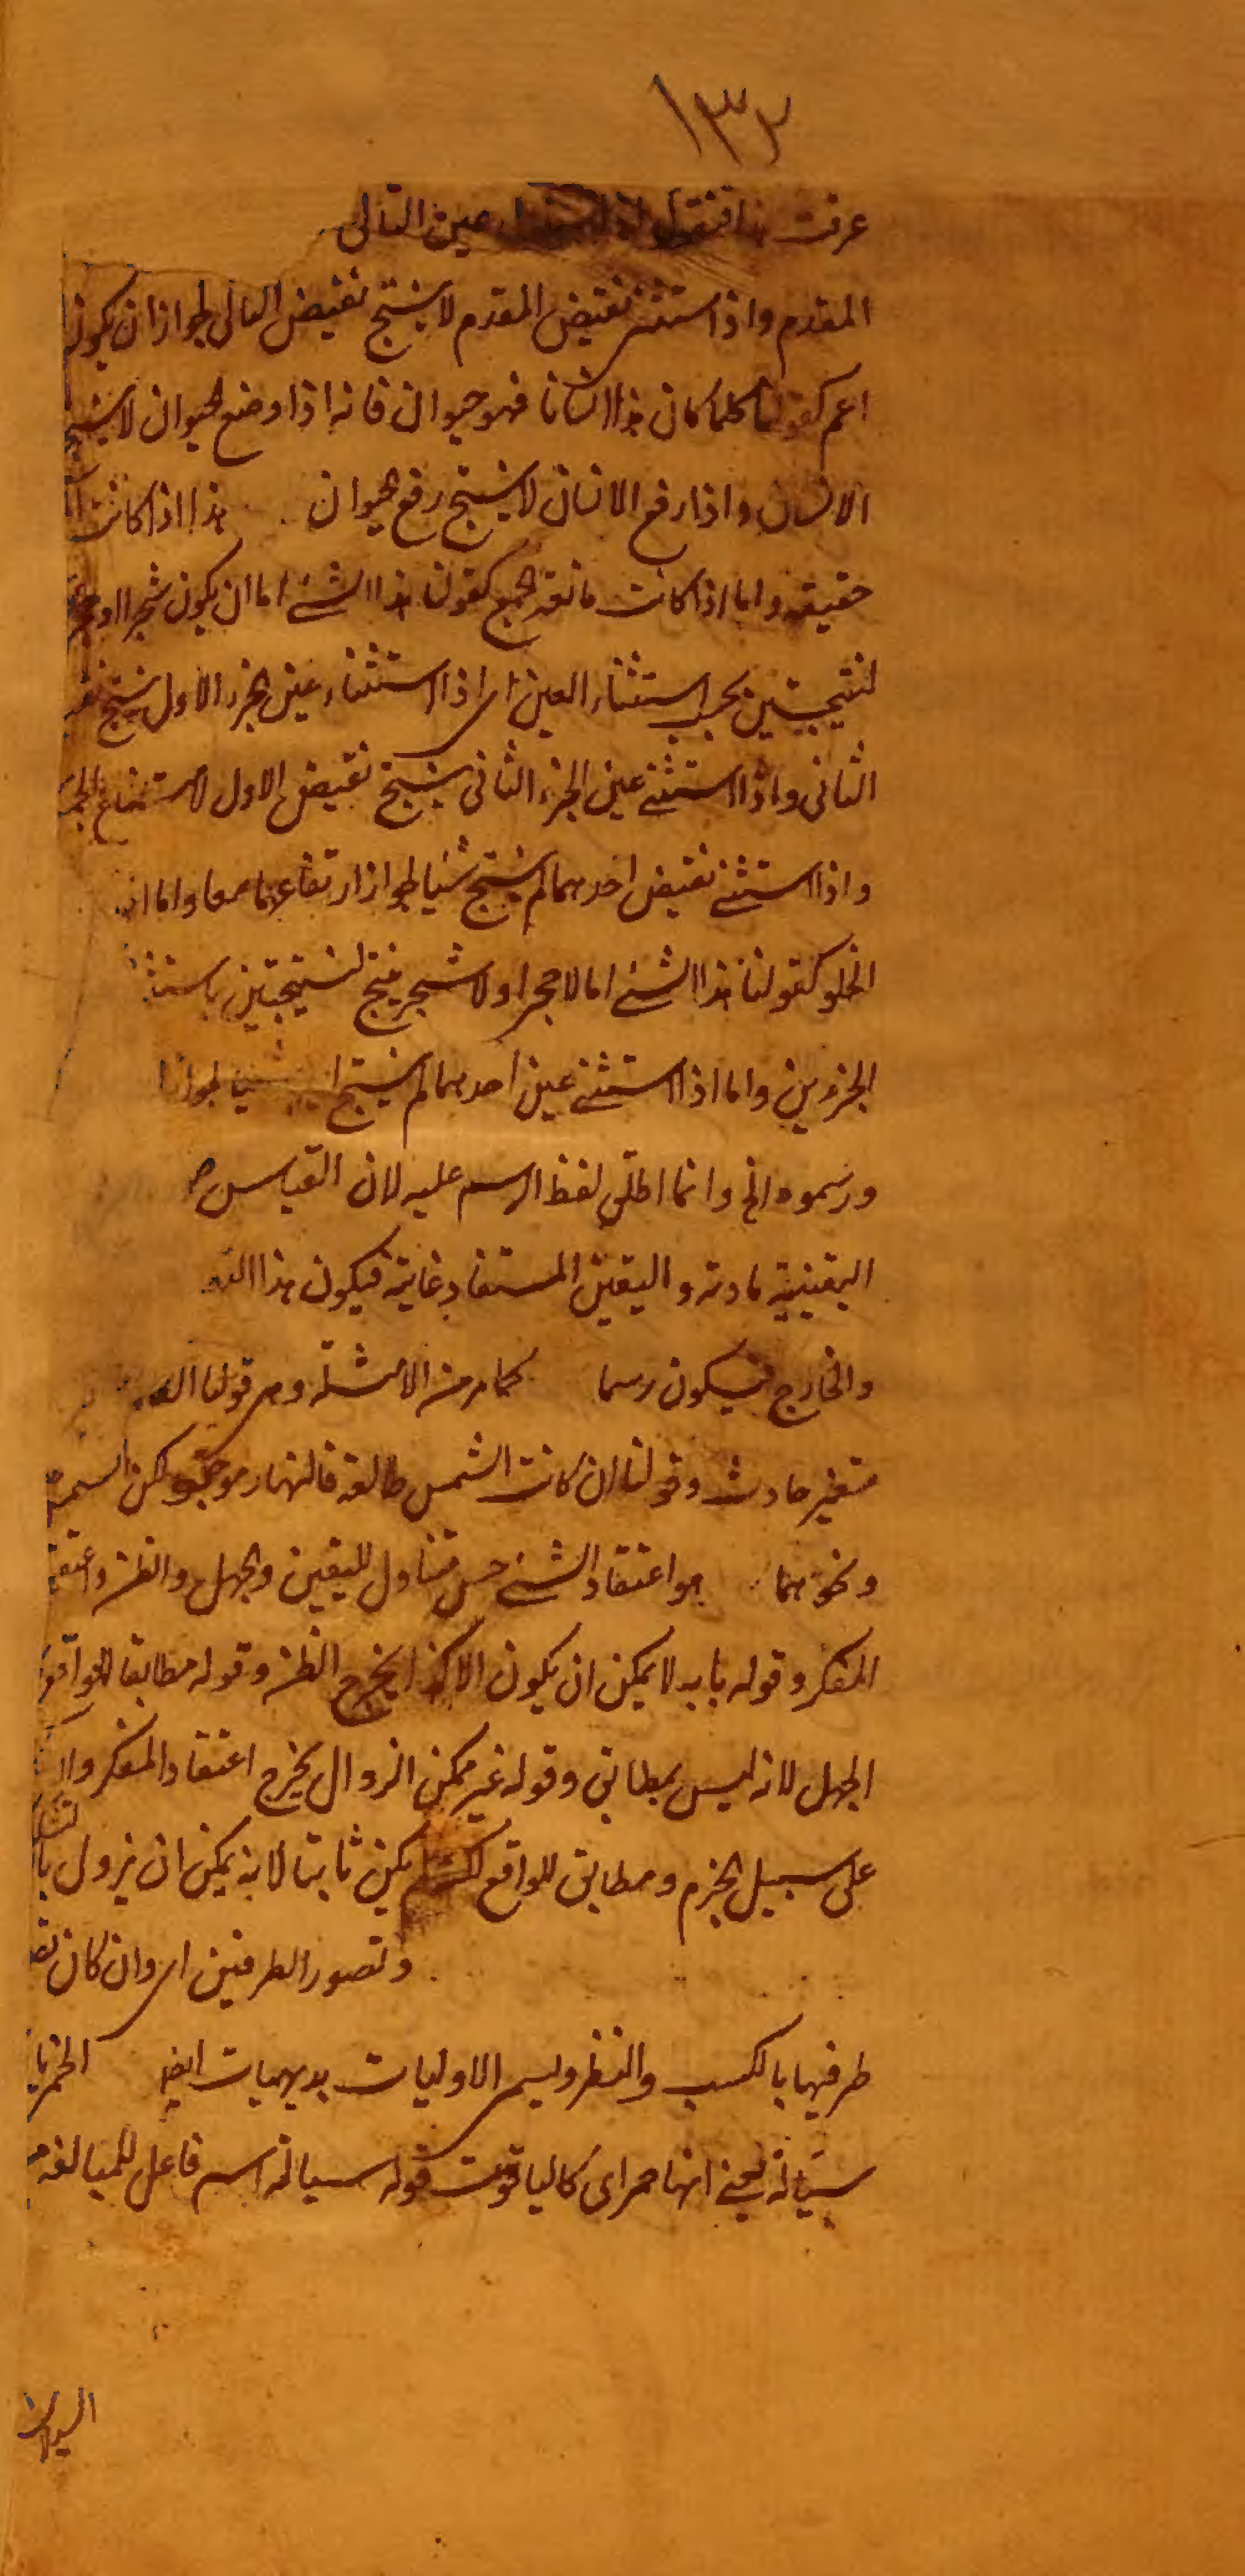 ١٣٢
عرفت هذا فنقول عين التالى
المقدم واذا استثنى نقيض المقدم لا ينتج نقيض التالى لجواز ان يكون
اعم كقولنا كلما كان هذا انسانا فهو حيوان فانه اذا وضع الحيوان لا ينتج
الانسان واذا رفع الانسان لا ينتج رفع الحيوان هذا اذا كانت
حقيقة واما اذا كانت مانعة الجمع كقولنا هذا الشئ اما ان يكون شجرا او حجرا
لنتيجتين بحسب استثناء العين اى اذا استثناء عين الجزء الاول ينتج
الثانى واذا استثنى عين الجزء الثانى ينتج نقيض الاول لامتناع
واذا استثنى نقيض احدهما لم ينتج شيئا لجواز ارتفاعهما معا واما
الخلو كقولنا هذا الشئ اما لا حجر او لا شجر ينتج لنتيجتين
الجزءين واما اذا استثنى عين احدهما لم ينتج شيئا لجواز
ورسموه الخ وانما اطلق لفظ الرسم عليه لان القياس
اليقينية مادته واليقين المستفاد غايته فيكون هذا
والخارج فيكون رسما كما مر من الامثلة وهى قولنا
متغير حادث وقولنا ان كانت الشمس طالعة فالنهار موجود لكن الشمس
ونحوهما هو اعتقاد الشئ جنس متناول لليقين والجهل والظن
المفكر وقوله بانه لا يمكن ان يكون الا كذا يخرج الظن وقوله مطابقا للواقع
الجهل لانه ليس بمطابق وقوله غير ممكن الزوال يخرج اعتقاد المفكر
على سبيل الجزم ومطابق للواقع لكنه لم يكن ثابتا لانه يمكن ان يزول
وتصور الطرفين اى وان كان
طرفيها بالكسب والنظر ويسمى الاوليات بديهيات ايضا الخمر
سيالة يعنى انها حمراى كالياقوت قوله سيالة اسم فاعل للمبالغة